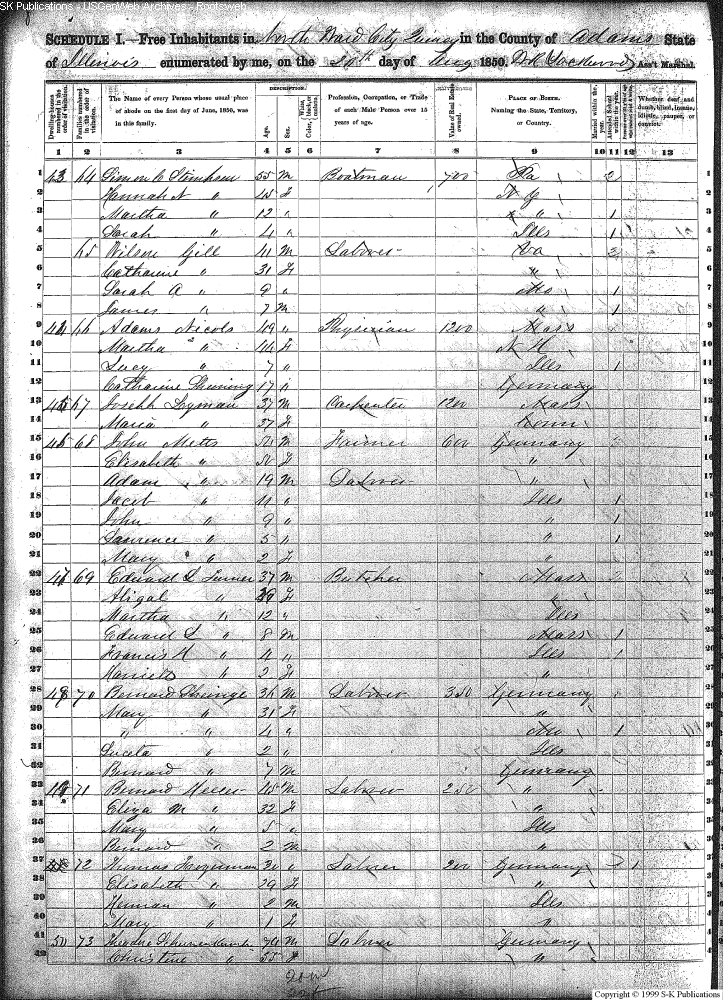 SK Publications - USGenWeb Archives - Rootsweb
SCHEDULE I.—Free Inhabitants in North Ward City Quincy in the County of Adams State
of Illinois enumerated by me, on the 20th day of Aug 1850. Ass't Marshal.
Dwelling-houses numbered in the order of visitation. Families numbered in the order of visitation. The Name of every Person whose usual place of abode on the first day of June, 1850, was in this family. DESCRIPTION. Age. Sex. Color, White, black, or mulatto. Profession, Occupation, or Trade of each Male Person over 15 years of age. Value of Real Estate owned. PLACE OF BIRTH. Naming the State, Territory, or Country. Married within the year. Attended School within the year. Whether deaf and dumb, blind, insane, idiotic, pauper, or convict.
1 2 3 4 5 6 7 8 9 10 11 12 13
1 43 64 Simon C Stimpson 55 M Boatman 700 Pa 2
2 Hannah N " 45 F N Y
3 Martha " 12 " " 1
4 Sarah " 4 " Ills 1
5 65 Wilson Gill 41 M Laborer Va
6 Catharine " 31 F "
7 Sarah A " 9 " Mo 1
8 James " 7 M " 1
9 44 66 Adams Nicols 49 " Physician 1200 Mass
10 Martha " 44 F N H
11 Lucy " 7 " Ills 1
12 Catharine 17 " Germany
13 67 Joseph Lyman 37 M Carpenter 1200 Mass
14 Maria " 37 F Conn
15 68 John Metts 50 M Farmer 600 Germany
16 Elisabeth " 50 F "
17 Adam " 19 M Laborer "
18 Jacob " 11 " Ills 1
19 John " 9 " " 1
20 Laurence " 5 " " 1
21 Mary " 2 F "
22 47 69 Edward L Turner 37 M Butcher Mass
23 Abigal " F "
24 Martha " 12 " Ills
25 Edward L " 8 M Mass 1
26 Francis H " 4 " Ills 1
27 Harriet " 2 F
28 48 70 Bernard 36 M Laborer 350 Germany
29 Mary " 31 F "
30 " " 4 " Mo 1
31 Luceta " 2 " Ills
32 Bernard " 7 M Germany
33 49 71 Bernard 45 M Laborer 250 "
34 Eliza M " 32 F "
35 Mary " 5 " Ills
36 Bernard " 2 M "
37 72 Thomas 30 " Laborer 200 Germany 1
38 Elisabeth " 29 F "
39 Herman " 2 M Ills
40 Mary " 1 F "
41 50 73 Theodore 74 M Laborer Germany
42 Christine " 55 F "
Copyright © 1999 S-K Publications